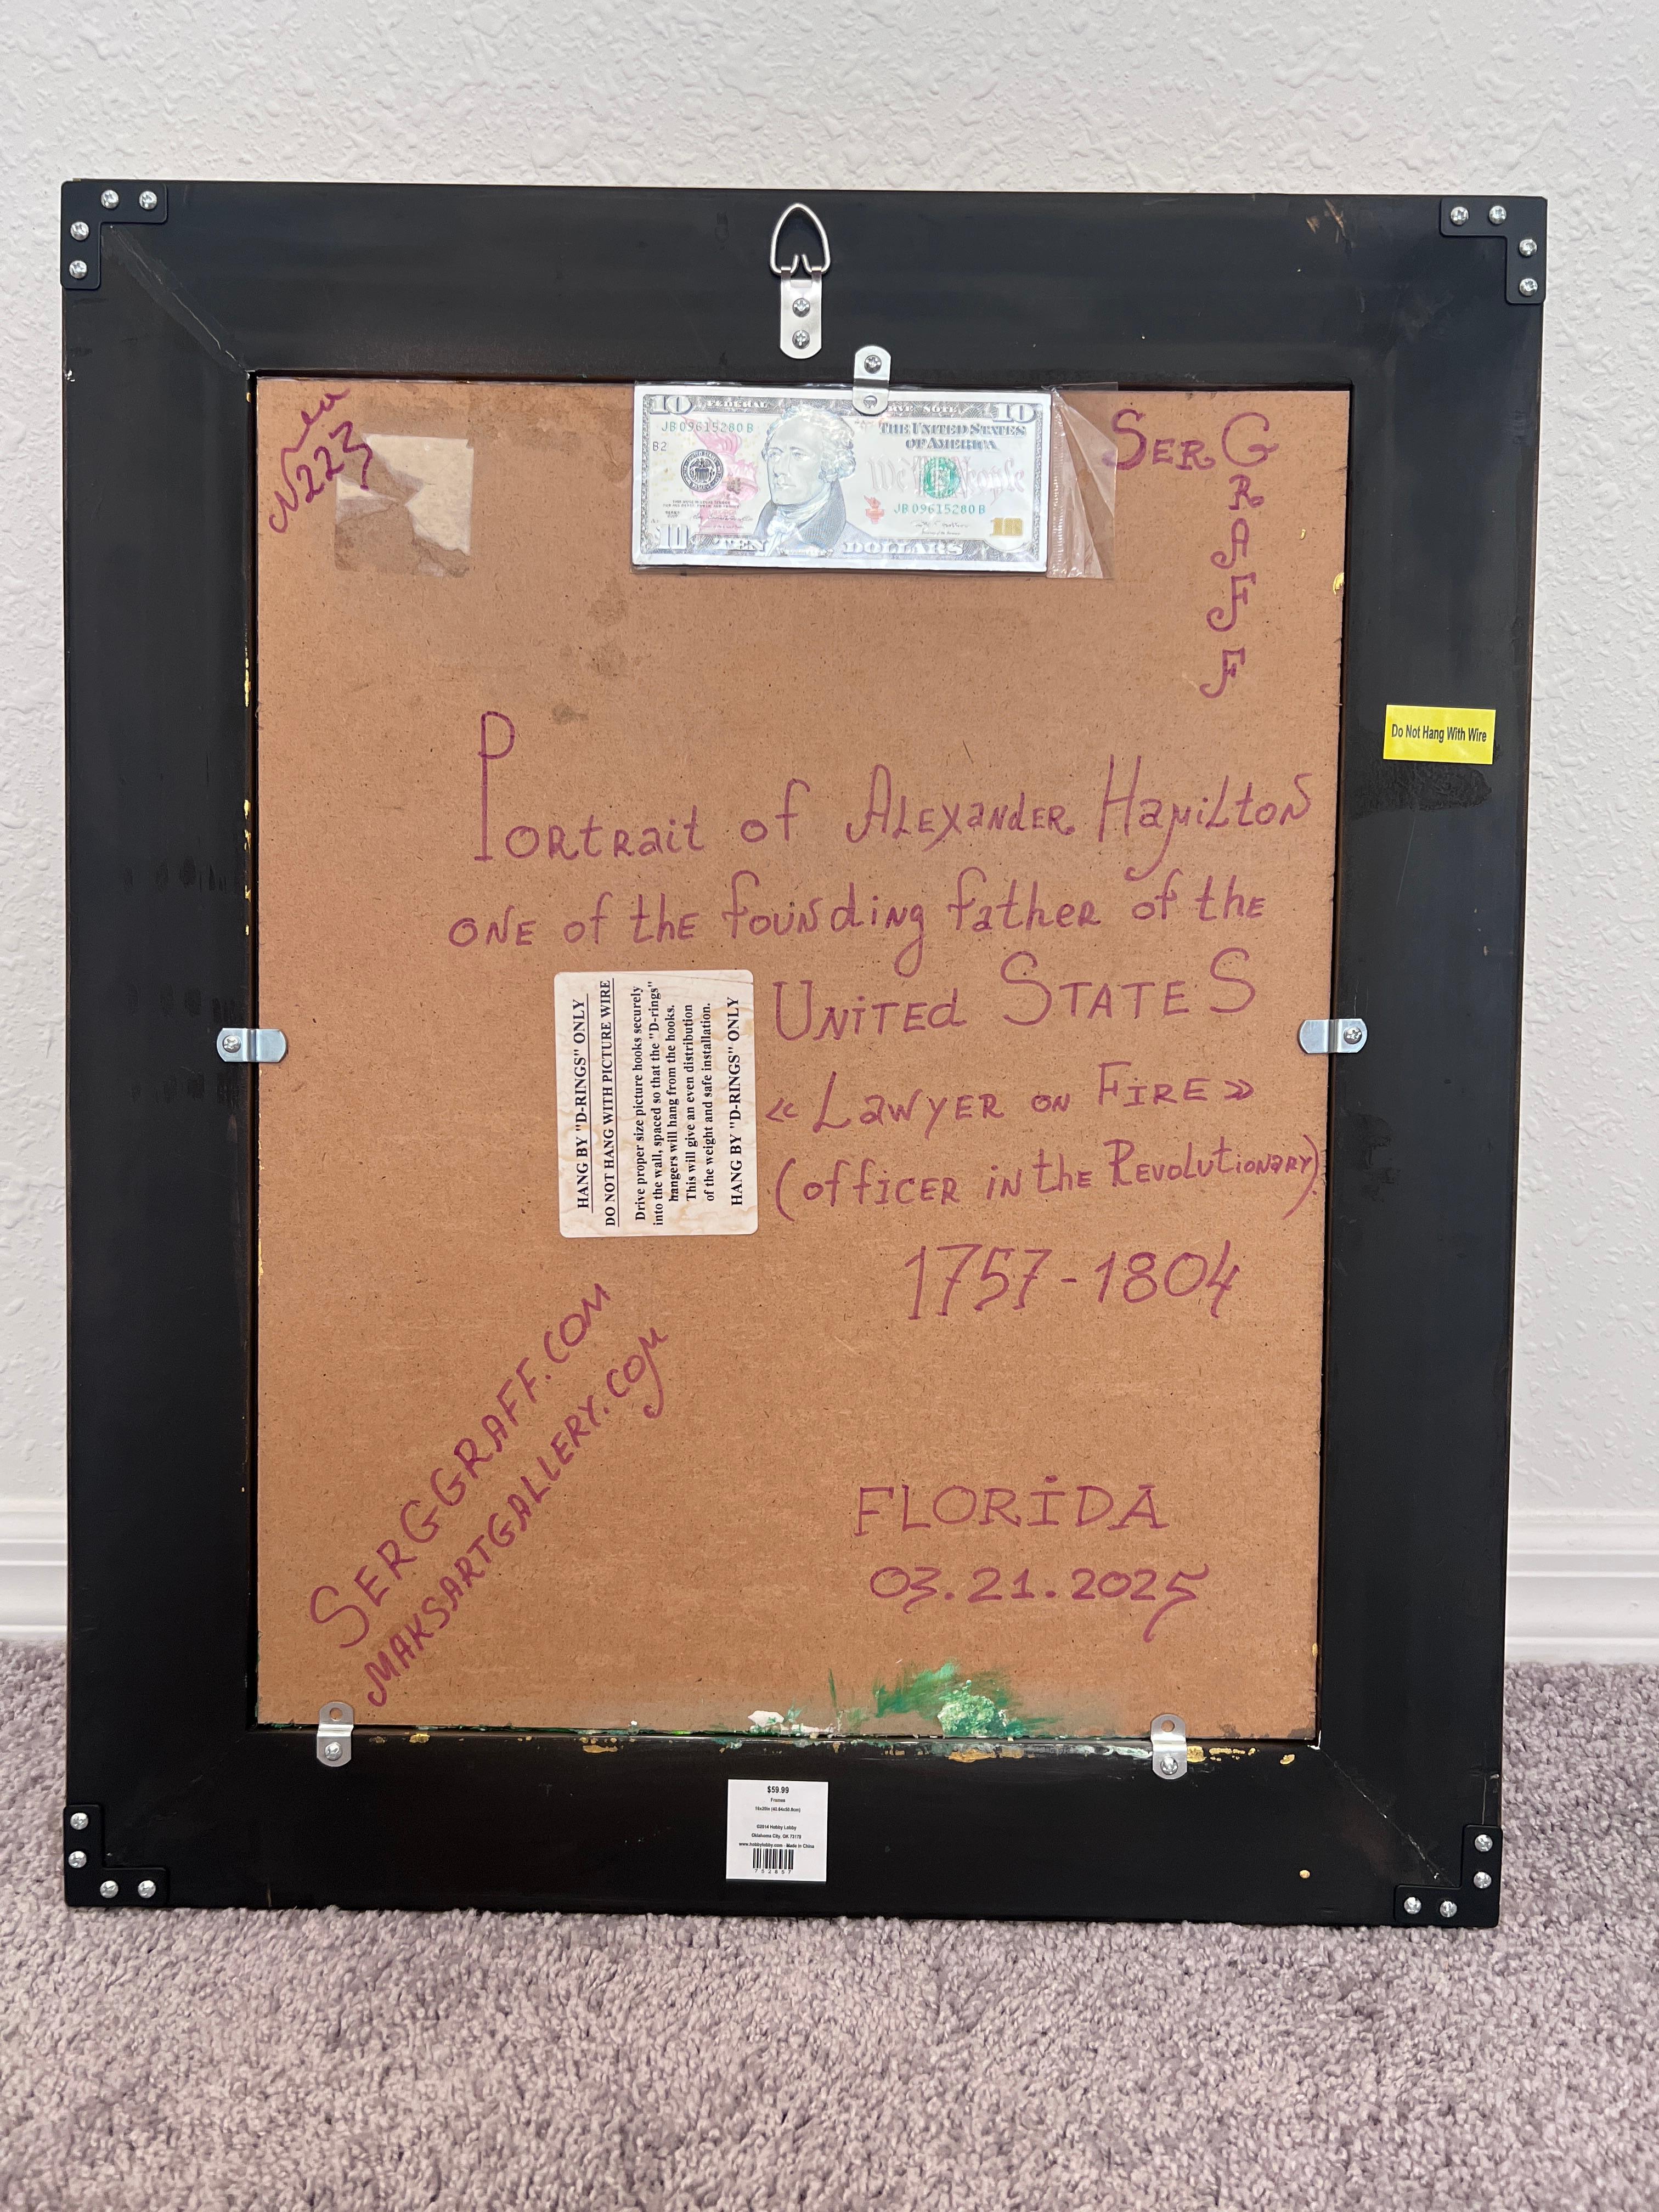 N223
10 FEDERAL RESERVE NOTE 10
JB 09615280 B
THE UNITED STATES
OF AMERICA
B2
We The People
JB 09615280 B
10 TEN DOLLARS
SERGRAFF
Do Not Hang With Wire
Portrait of ALEXanDER HamiLtoN
ONE of thE fouNding father of thE
UNiTEd STATES
« LawYER oN FiRE »
(officER iN thE REvolutionary)
1757-1804
HANG BY "D-RINGS" ONLY
DO NOT HANG WITH PICTURE WIRE
Drive proper size picture hooks securely
into the wall, spaced so that the "D-rings"
hangers will hang from the hooks.
This will give an even distribution
of the weight and safe installation.
HANG BY "D-RINGS" ONLY
SERGGRAFF.COM
MAKSARTGALLERY.COM
FLORiDA
03.21.2025
$59.99
Frames
16x20in (40.64x50.8cm)
©2014 Hobby Lobby
Oklahoma City, OK 73179
www.hobbylobby.com · Made in China
752857